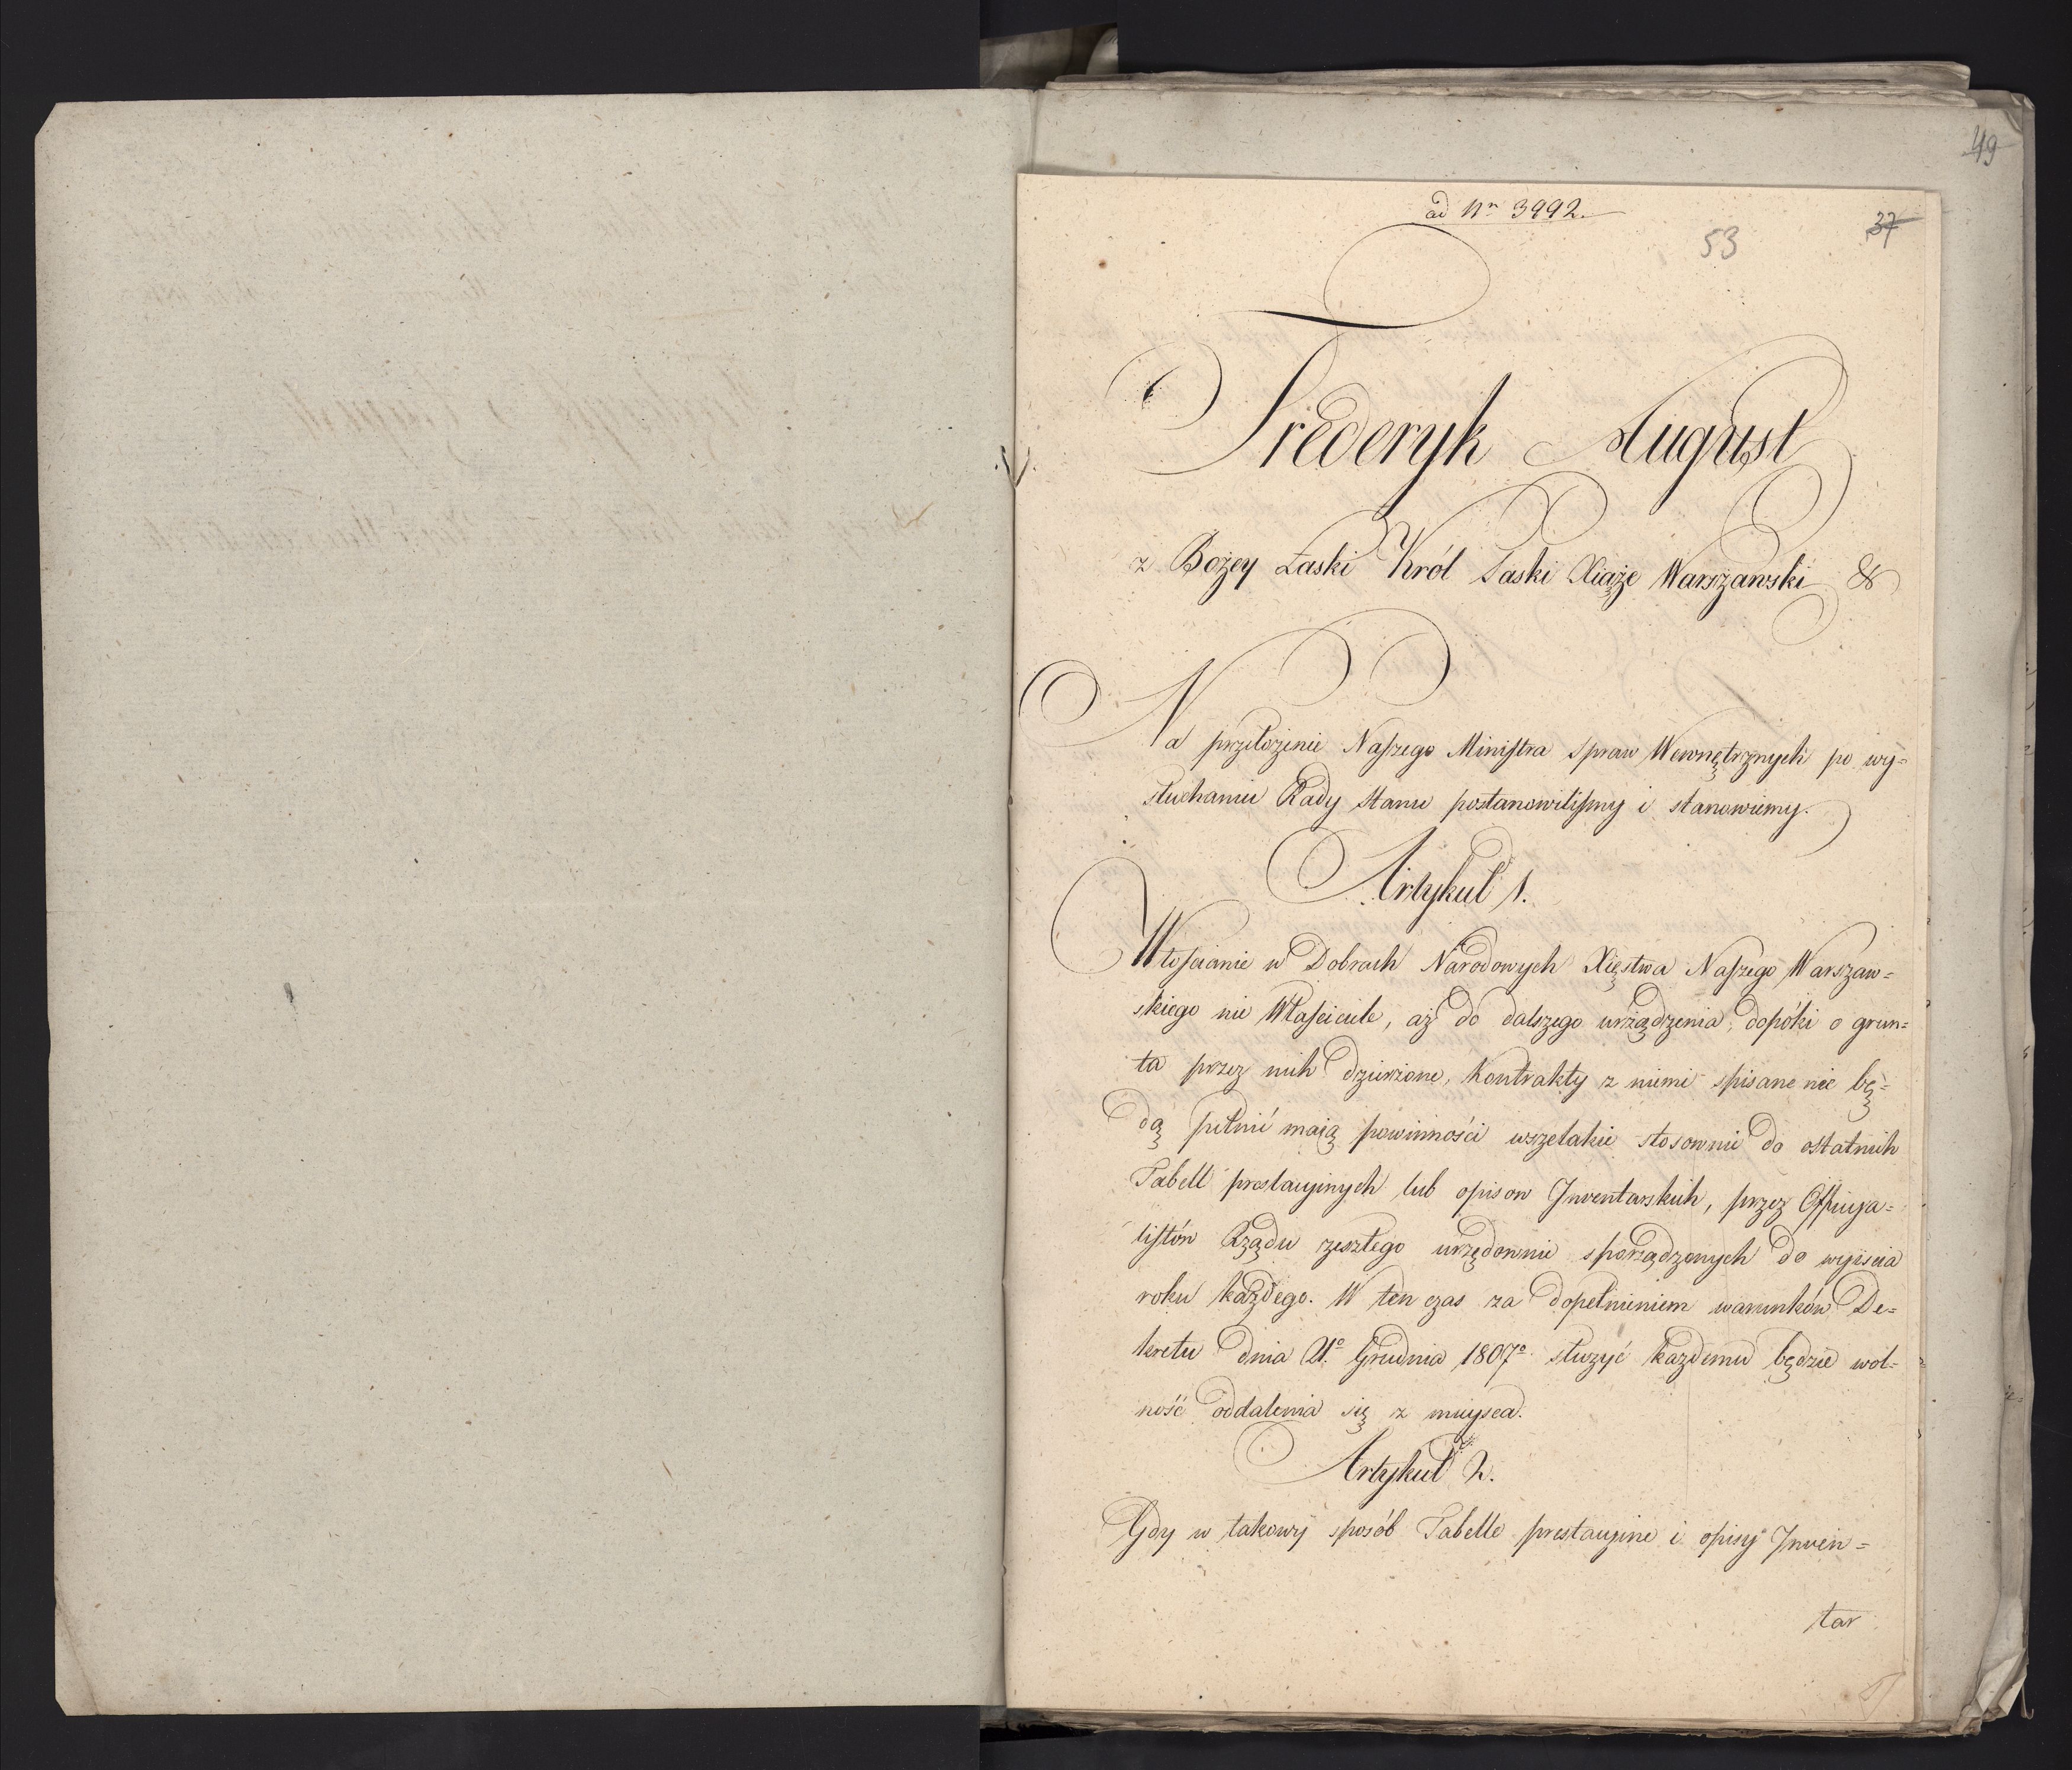 49
ad Nrn 3992.
53
37
Frederyk August
z Bożey Łaski Król Saski Xiąże Warszawski &
Na przełożenie Naszego Ministra Spraw Wewnętrznych po wy=
słuchaniu Rady Stanu postanowiliśmy i stanowiemy.
Artykuł 1.
Włościanie w Dobrach Narodowych Xięstwa Naszego Warszaw=
skiego nie Właściciele, aż do dalszego urządzenia, dopóki o grun=
ta przez nich dzierżone, Kontrakty z niemi spisane nie bę=
dą pełnić maią powinności wszelakie stosownie do ostatnich
Tabell prestacyinych lub opisow Inwentarskich, przez Officya=
listów Rządu zeszłego urzędownie sporządzonych do wyiscia
roku każdego. W ten czas za dopełnieniem warunków De=
kretu dnia 21o Grudnia 1807o służyć każdemu będzie wol=
ność oddalenia się z mieysca.
Artykuł 2.
Gdy w takowy sposób Tabelle prestacyine i opisy Inwen=
tar